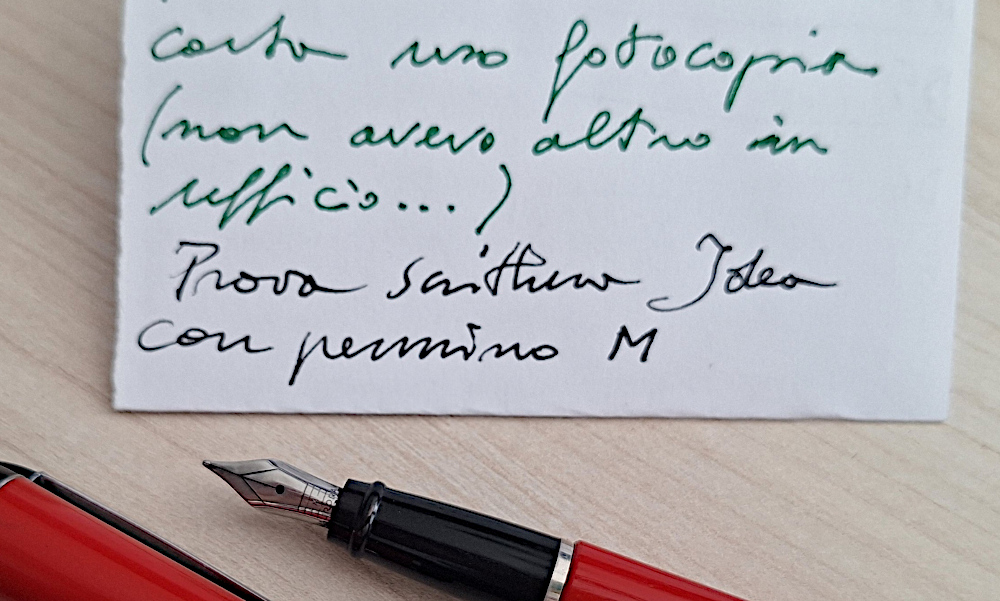 carta uso fotocopia
(non avevo altro in
ufficio...)
Prova scrittura Idea
con pennino M